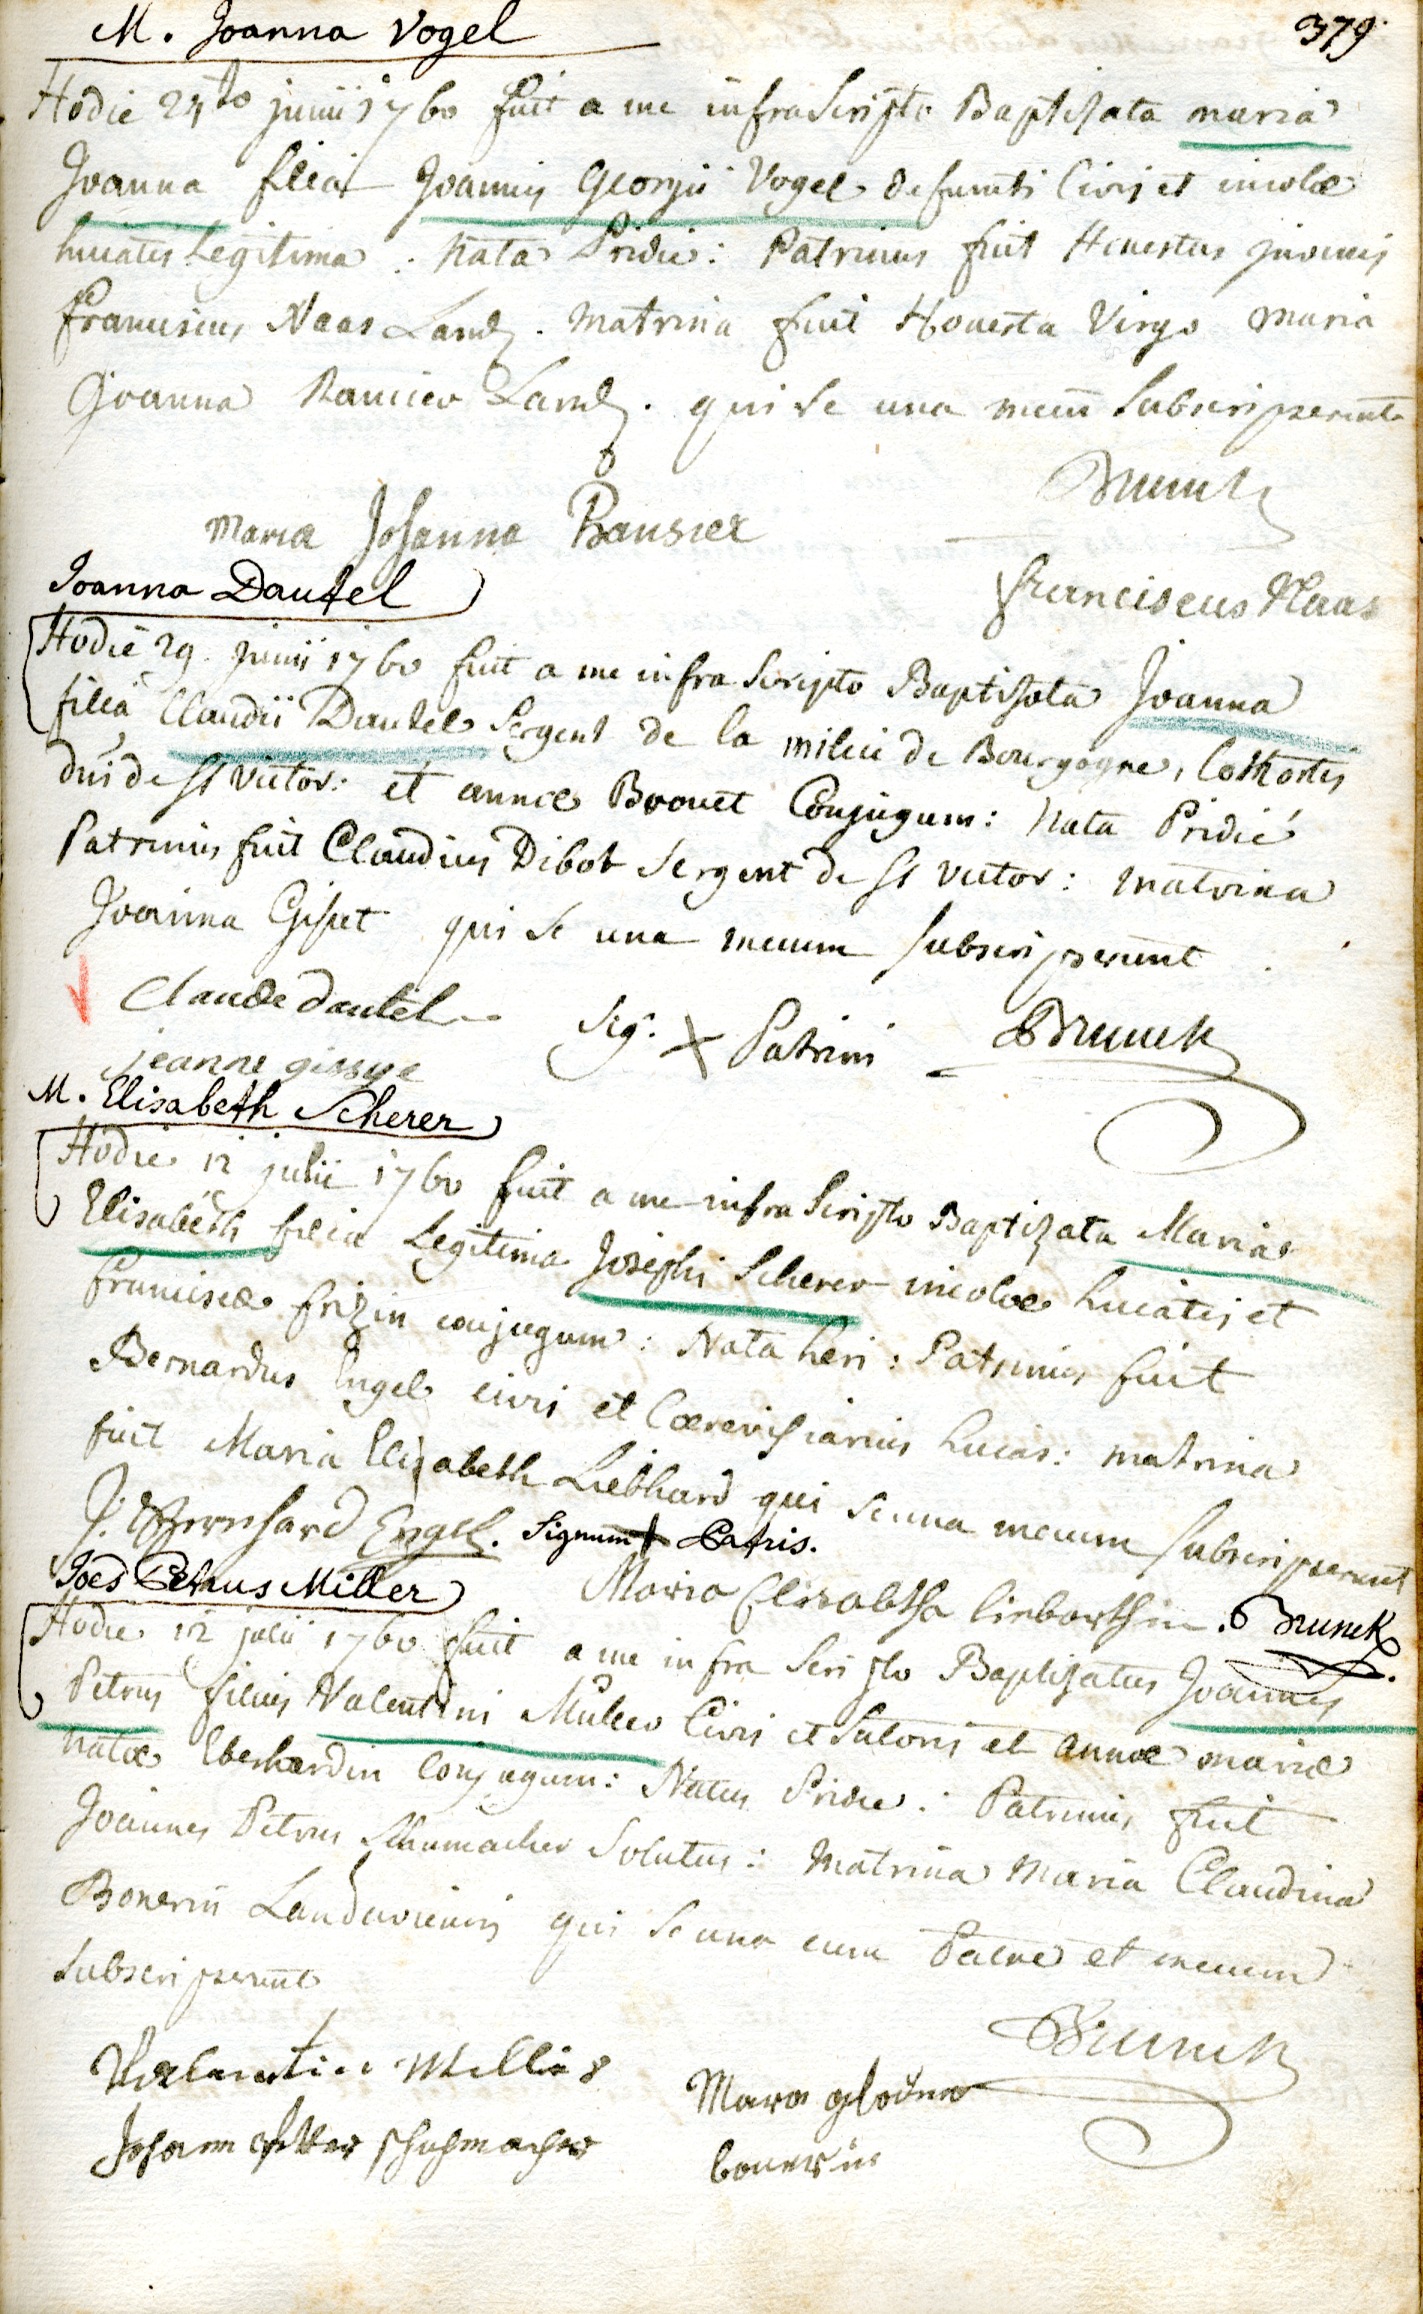 M. Joanna Vogel
379.
Hodie 24to junii 1760 fuit a me infra Scripto Baptisata maria
Joanna filia Joannis Georgii Vogel defuncti Civis et incolæ
hucatis Legitima : Nata Pridie : Patrinus fuit Honestus juvenis
Franciscus Naas Land. Matrina fuit Honesta Virgo Maria
Joanna Land. qui se una mecum Subscripserunt
Brunck
Maria Johanna
Franciscus Naas
Joanna Dautel
Hodie 29 junii 1760 fuit a me infra Scripto Baptisata Joanna
filia Claudii Dautel Sergent de la milice de Bourgogne, Cohortis
dni de St Victor : et annæ Brouet Conjugum : Nata Pridie
Patrinus fuit Claudius Dibot Sergent de St Victor : matrina
Joanna Gisset qui se una mecum subscripserunt
Claude dautel
Sig. X Patrini
Brunck
jeanne
M. Elisabeth Scherer
Hodie 12 julii 1760 fuit a me infra Scripto Baptizata Maria
Elisabeth filia Legitima Josephi Scherer incolæ hucatis et
Franciscæ Frizin conjugum : Nata heri : Patrinus fuit
Bernardus Engel civis et Cærevisiarius hucas : matrina
fuit Maria Elisabeth Liebhard qui se una mecum subscripserunt
J. Bernhard Engel. Signum + Patris.
Maria Elisabetha liebharthin. Brunck
Joes Petrus Miller
Hodie 12 julii 1760 fuit a me infra Scripto Baptisatus Joannes
Petrus filius Valentini Muller Civis et Sutoris et annæ mariæ
natæ Eberhardin Conjugum : Natus Pridie : Patrinus fuit
Joannes Petrus Schumacher Solutus : Matrina Maria Claudina
Bonerin Landaviensis qui se una cum Patre et mecum
Subscripserunt
Brunck
Valentin Miller
Johann Petter schuhmacher
Mara glodina
bonerin